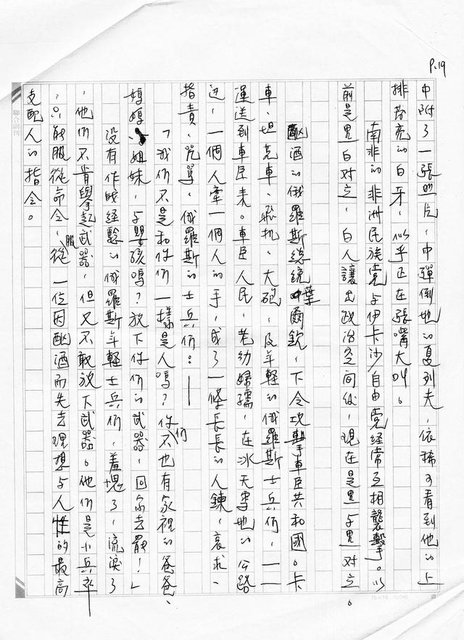 P.19
中附了一張照片，中彈倒地的夏列夫，依稀可看到他的上
排發亮的白牙，似乎正在張嘴大叫。
南非的非洲民族黨与伊卡沙自由黨經常互相襲擊。以
前是黑白对立，白人讓出政治空间後，現在是黑与黑对立。
酗酒的俄羅斯總統葉爾欽，下令攻擊車臣共和國。卡
車、坦克車、飛机、大砲，及年輕的俄羅斯士兵们，一一
運送到車臣去。車臣人民，老幼婦孺，在冰天雪地的公路
边，一個人牽一個人的手，成了一條長長的人鍊，哀求、
指責、咒罵，俄羅斯的士兵们：——
「我们不是和你们一樣是人嗎？你们不也有家裡的爸爸、
媽媽、姐妹，与嬰孩嗎？放下你们的武器，回家去罷！」
没有作战经驗的俄羅斯年輕士兵们，羞愧了，流淚了
，他们不肯舉起武器，但又不敢放下武器。他们是小兵卒
，只能服從命令，服從一位因酗酒而失去理想与人性的最高
支配人的指令。